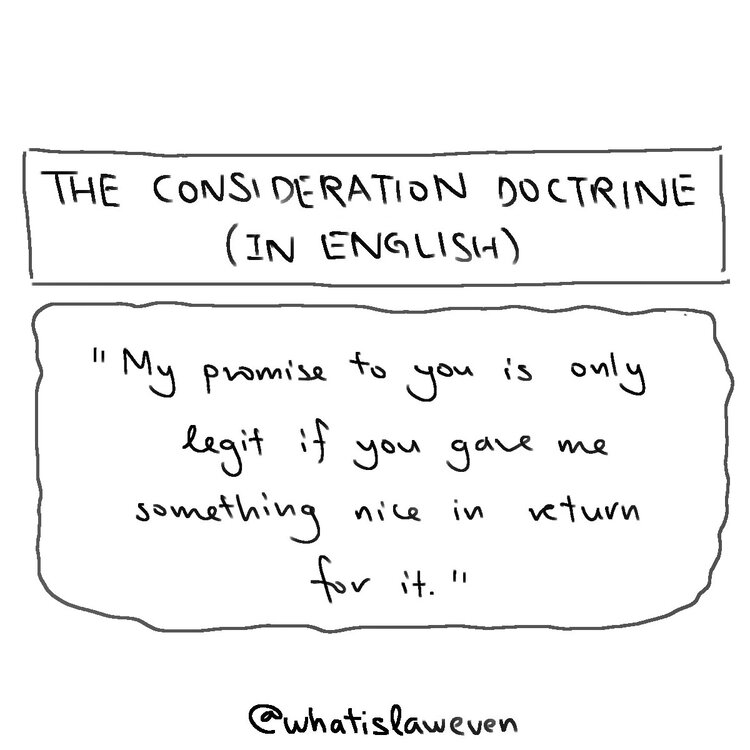 THE CONSIDERATION DOCTRINE
(IN ENGLISH)
"My promise to you is only
legit if you gave me
something nice in return
for it."
@whatislaweven